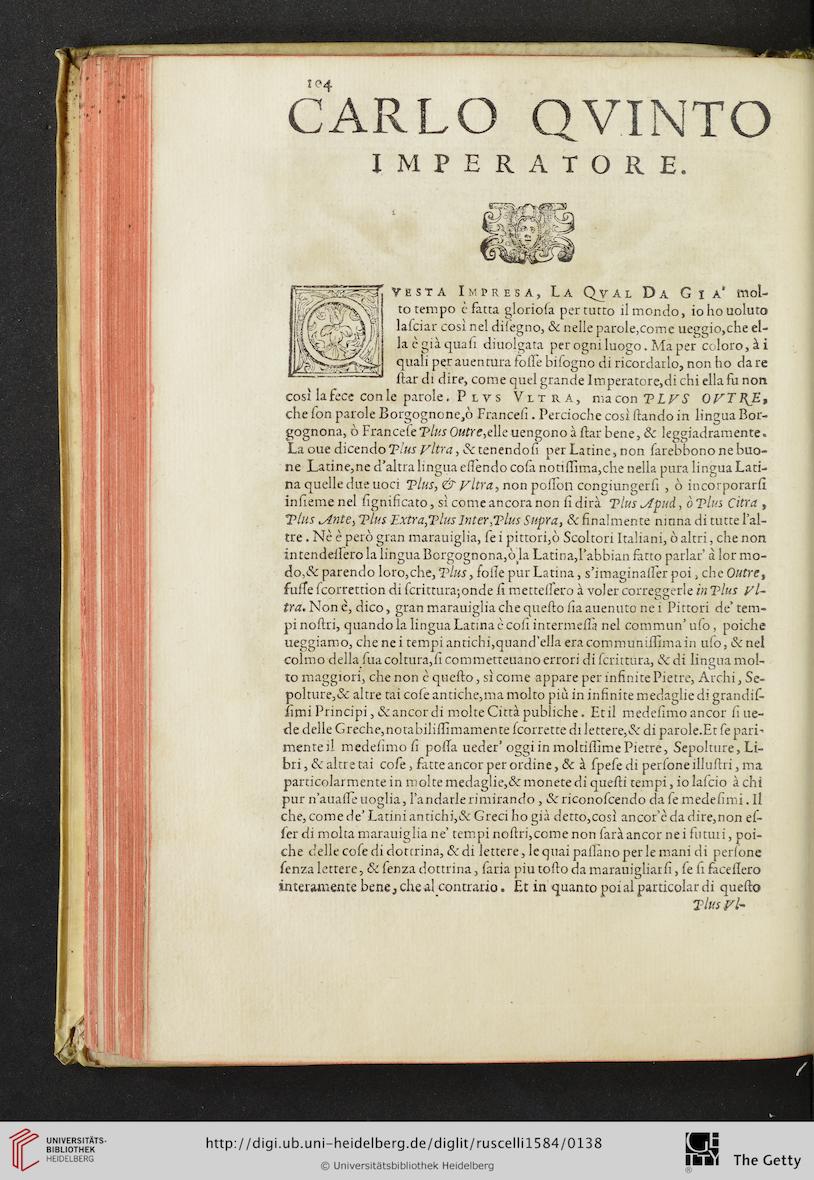 104
CARLO QVINTO
IMPERATORE.
QVESTA IMPRESA, LA QVAL DA GIA' mol-
to tempo è fatta glorioſa per tutto il mondo, io ho uoluto
laſciar così nel diſegno, & nelle parole,come ueggio,che el-
la è già quaſi diuolgata per ogni luogo. Ma per coloro, à i
quali per auentura foſſe biſogno di ricordarlo, non ho da re
ſtar di dire, come quel grande Imperatore,di chi ella fu non
così la fece con le parole. PLVS VLTRA, ma con PLVS OVTRE,
che ſon parole Borgognone,ò Franceſi. Percioche così ſtando in lingua Bor-
gognona, ò Franceſe Plus Outre,elle uengono à ſtar bene, & leggiadramente.
La oue dicendo Plus Vltra, & tenendoſi per Latine, non ſarebbono ne buo-
ne Latine,ne d'altra lingua eſſendo coſa notiſſima,che nella pura lingua Lati-
na quelle due uoci Plus, & Vltra, non poſſon congiungerſi, ò incorporarſi
inſieme nel ſignificato, sì come ancora non ſi dirà Plus Apud, ò Plus Citra,
Plus Ante, Plus Extra,Plus Inter,Plus Supra, & finalmente niuna di tutte l'al-
tre. Nè è però gran marauiglia, ſe i pittori,ò Scoltori Italiani, ò altri, che non
intendeſſero la lingua Borgognona,ò la Latina,l'abbian fatto parlar' à lor mo-
do,& parendo loro,che, Plus, foſſe pur Latina, s'imaginaſſer poi, che Outre,
fuſſe ſcorrettion di ſcrittura;onde ſi metteſſero à voler correggerle in Plus Vl-
tra. Non è, dico, gran marauiglia che queſto ſia auenuto ne i Pittori de' tem-
pi noſtri, quando la lingua Latina è coſi intermeſſa nel commun' uſo, poiche
ueggiamo, che ne i tempi antichi,quand'ella era communiſſima in uſo, & nel
colmo della ſua coltura,ſi commetteuano errori di ſcrittura, & di lingua mol-
to maggiori, che non è queſto, sì come appare per infinite Pietre, Archi, Se-
polture,& altre tai coſe antiche,ma molto più in infinite medaglie di grandiſ-
ſimi Principi, & ancor di molte Città publiche. Et il medeſimo ancor ſi ue-
de delle Greche,notabiliſſimamente ſcorrette di lettere,& di parole.Et ſe pari-
mente il medeſimo ſi poſſa ueder' oggi in moltiſſime Pietre, Sepolture, Li-
bri, & altre tai coſe, fatte ancor per ordine, & à ſpeſe di perſone illuſtri, ma
particolarmente in molte medaglie,& monete di queſti tempi, io laſcio à chi
pur n'auaſſe uoglia, l'andarle rimirando, & riconoſcendo da ſe medeſimi. Il
che, come de' Latini antichi,& Greci ho già detto,così ancor'è da dire,non eſ-
ſer di molta marauiglia ne' tempi noſtri,come non ſarà ancor ne i futuri, poi-
che delle coſe di dottrina, & di lettere, le quai paſſano per le mani di perſone
ſenza lettere, & ſenza dottrina, ſaria piu toſto da marauigliarſi, ſe ſi faceſſero
interamente bene, che al contrario. Et in quanto poi al particolar di queſto
Plus Vl-
UNIVERSITÄTS-
BIBLIOTHEK
HEIDELBERG
http://digi.ub.uni-heidelberg.de/diglit/ruscelli1584/0138
© Universitätsbibliothek Heidelberg
GETTY
®
The Getty